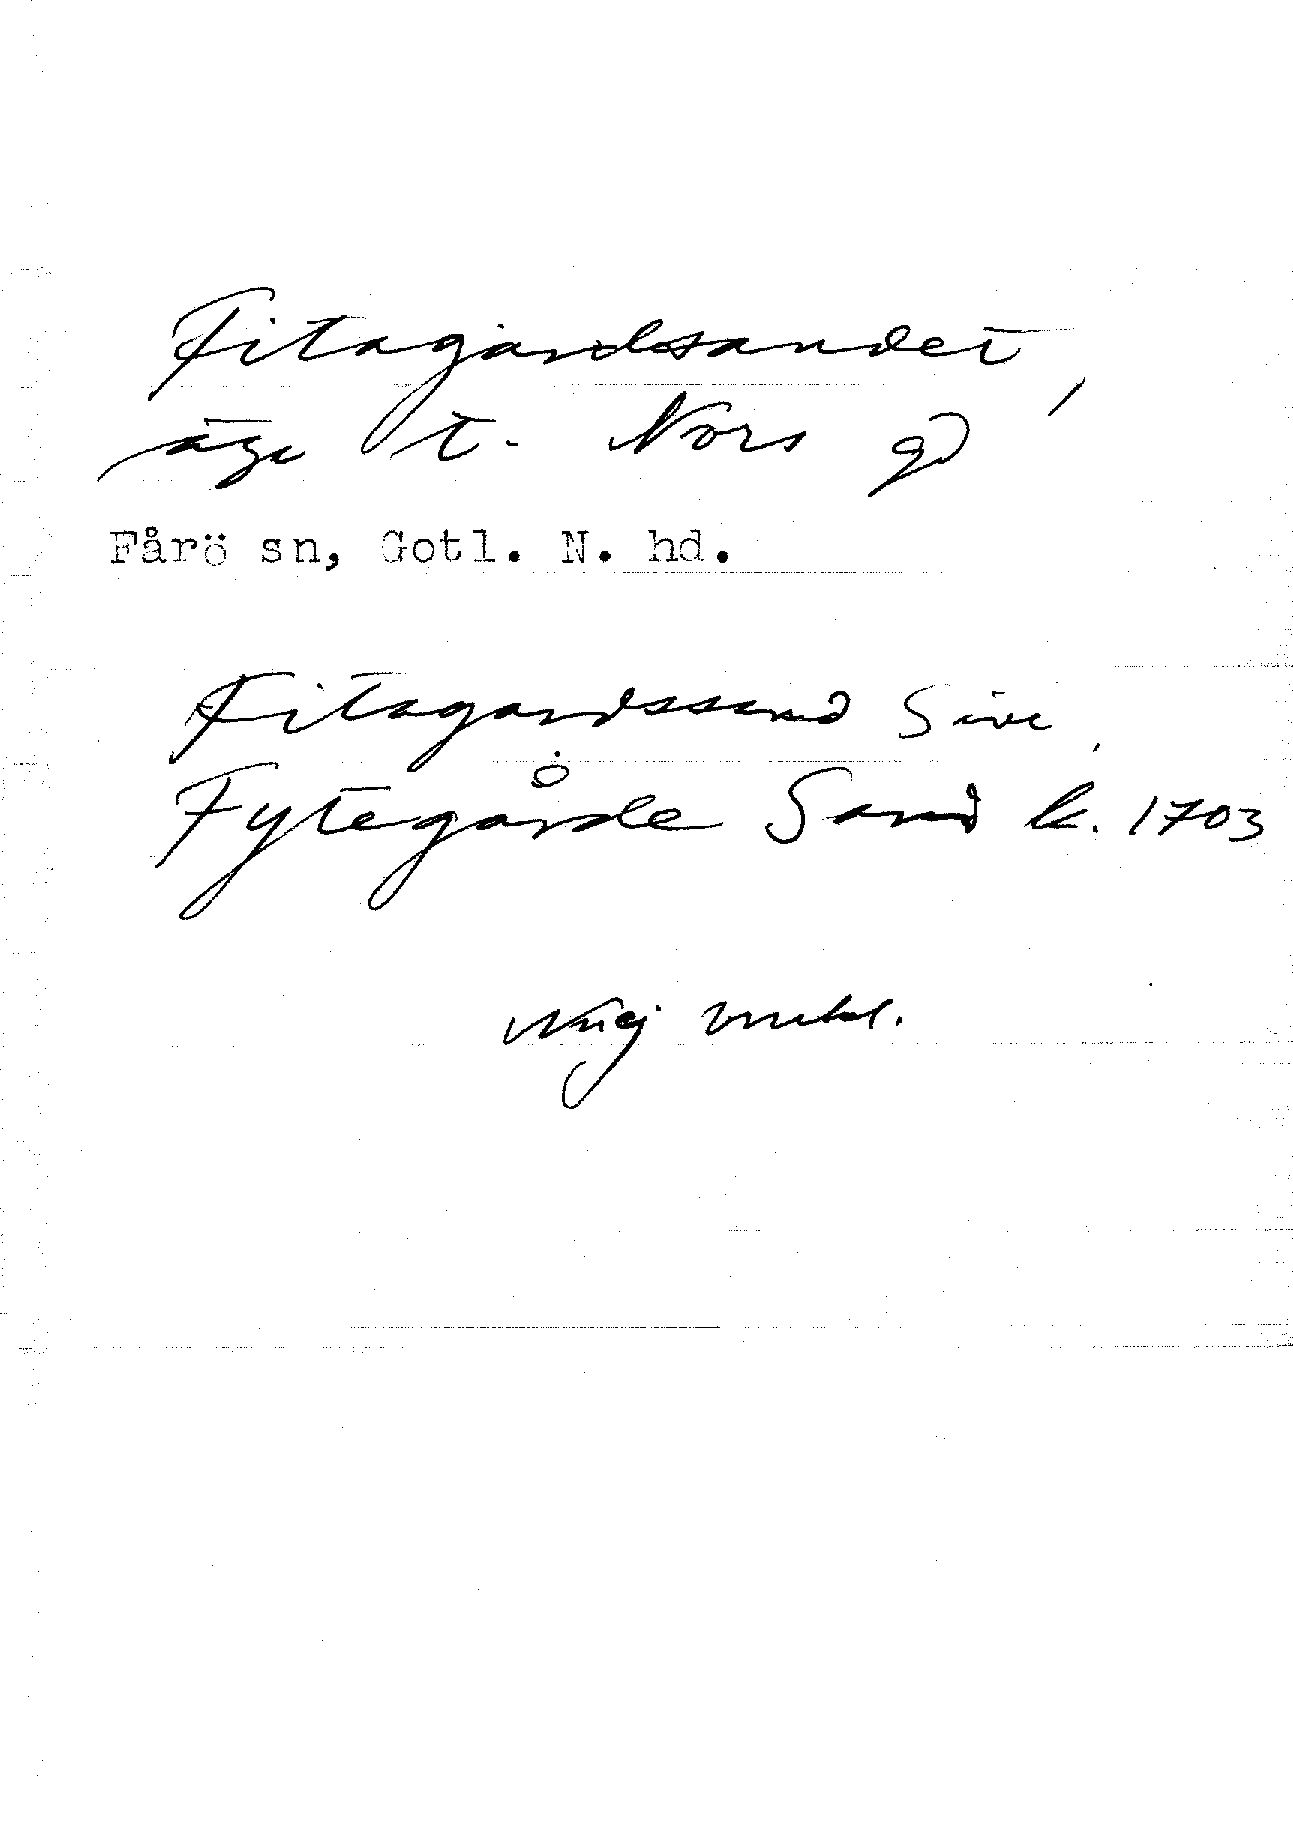 Fitagardsandet,
äga t. Nors gd
Fårö sn, Gotl. N. hd.
Fitagardssand Sive,
Fytegårde Sand k. 1703